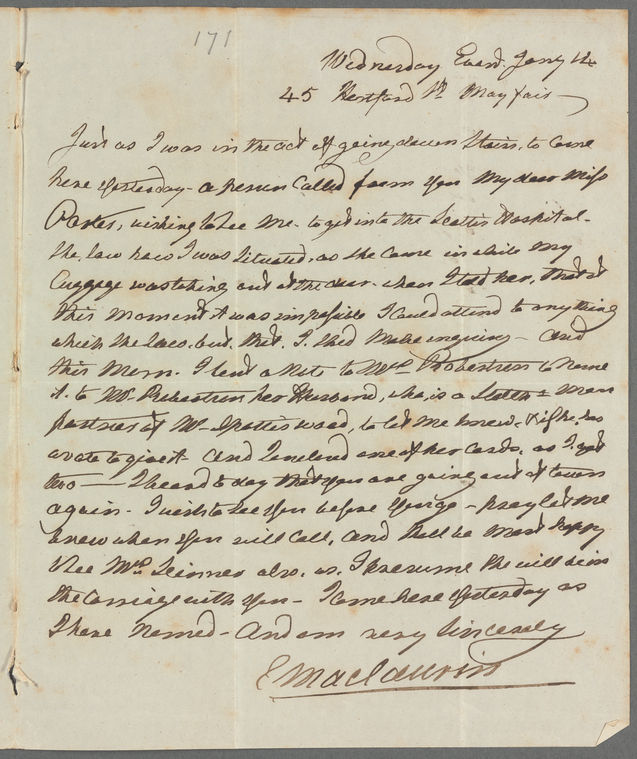 171
Wednesday Eveng. Jany 14
45 Hertford St. May fair
Just as I was in the act of going down Stairs, to Come
here Yesterday - a person Called from You My dear Miss
Porter, wishing to See Me - to get into the Scotts Hospital -
She, saw how I was Situated, as She Came in while My
Luggage was taking out at the door - when I told her, that at
this Moment it was impossible I Could attend to anything
which She saw, but that I Shd Make inquiry - and
this Morng. I sent a Note to Mrs. Robertson to Name
it - to Mr. Robertson her Husband, who, is a Scotch Man
partner of Mr. Spottiswood, to let me know - if he, has
a vote to give it - and I enclosed one of her Cards, as I got
two - I heard to day that You are going out of town
again - I wish to See You before You go - pray let Me
know when You will Call, and Shall be Most happy
to See Mrs. Skinner also, as, I presume She will be in
the Carriage with You - I Came here Yesterday as
I have Named - And am very Sincerely
E Maclaurin